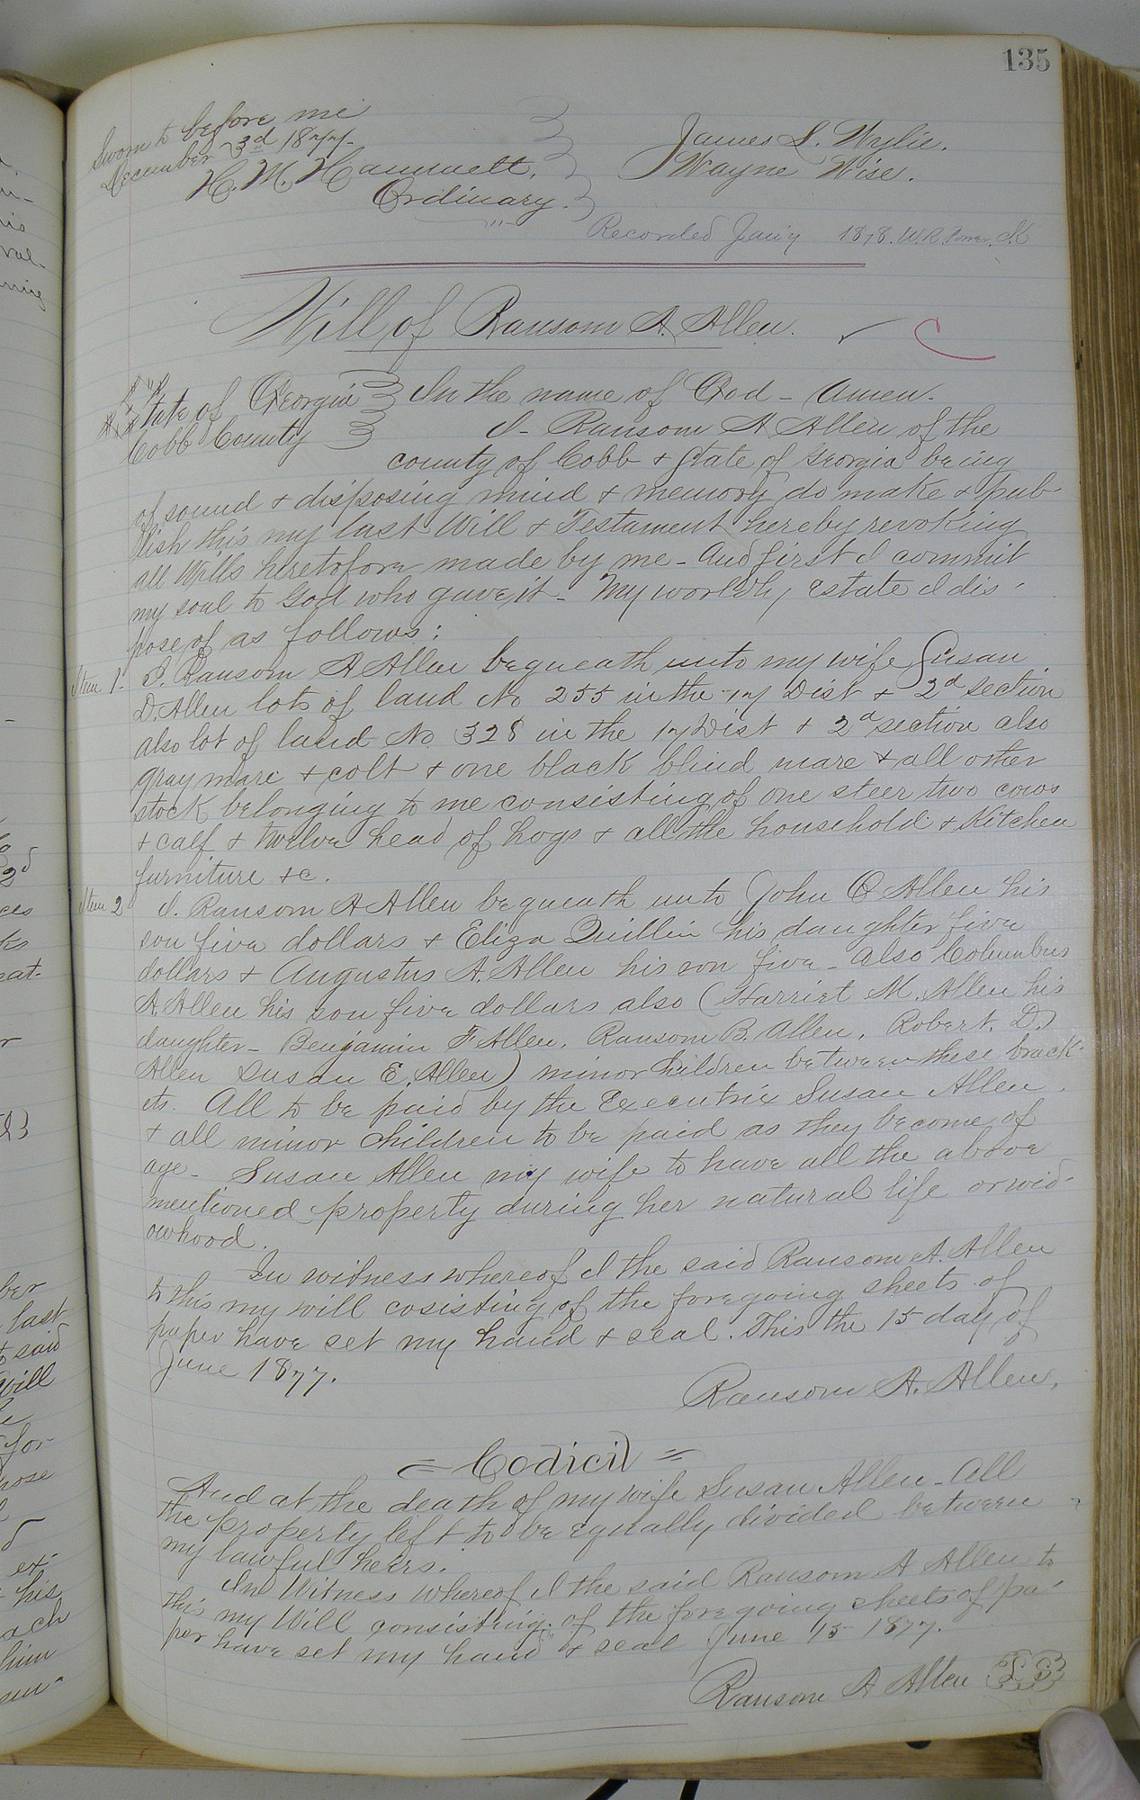 135
Sworn to before me
December 3d 1877.
H. M. Hammett,
Ordinary.
James L. Wylie.
Wayne Wise.
Recorded Jany 1878. W.R. C.K
Will of Ransom A. Allen.
State of Georgia In the name of God - Amen.
Cobb County I - Ransom A Allen of the
county of Cobb & State of Georgia being
of sound & disposing mind & memory do make & pub-
lish this my last Will & Testament hereby revoking
all Wills heretofore made by me - And first I commit
my soul to God who gave it - My worldly Estate I dis-
pose of as follows:
Item 1. I. Ransom A Allen bequeath unto my wife Susan
D. Allen lots of land No 255 in the 17 Dist & 2d section
also lot of land No 328 in the 17 Dist & 2d section also
gray mare & colt & one black blind mare & all other
stock belonging to me consisting of one steer two cows
& calf & twelve head of hogs & all the household & Kitchen
furniture &c.
Item 2 I. Ransom A Allen bequeath unto John O Allen his
son five dollars & Eliza Quillin his daughter five
dollars & Augustus A. Allen his son five - also Columbus
A. Allen his son five dollars also (Harriet M. Allen his
daughter - Benjamin F Allen, Ransom B. Allen, Robert. D.
Allen Susan E. Allen) minor children between these brack-
ets. All to be paid by the Executrix Susan Allen.
& all minor children to be paid as they become of
age - Susan Allen my wife to have all the above
mentioned property during her natural life or wid-
owhood.
In witness whereof I the said Ransom A. Allen
to this my will cosisting of the foregoing sheets of
paper have set my hand & seal. This the 15 day of
June 1877.
Ransom A. Allen.
= Codicil =
And at the death of my wife Susan Allen - All
the property left to be equally divided between
my lawful heirs.
In Witness whereof I the said Ransom A Allen to
this my Will consisting of the foregoing sheets of pa-
per have set my hand & seal June 15 1877.
Ransom A Allen LS